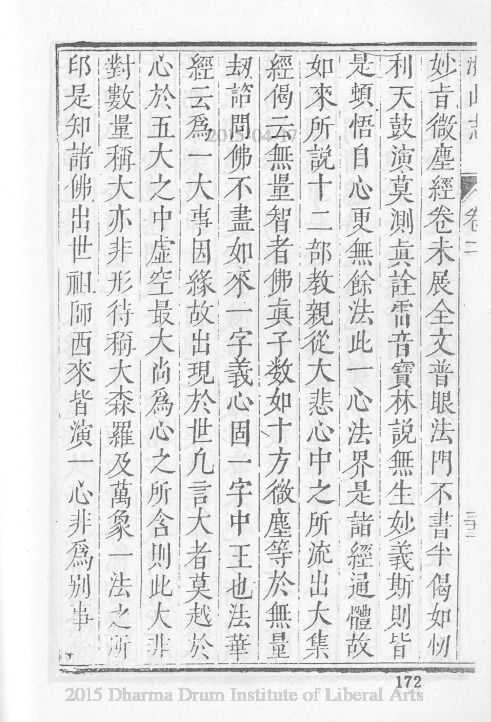 妙旨微塵經卷未展全文普眼法門不書半偈如忉
利天鼓演莫測眞詮雷音寶林說無生妙義斯則皆
是頓悟自心更無餘法此一心法界是諸經通體故
如來所說十二部教親從大悲心中之所流出大集
經偈云無量智者佛眞子数如十方微塵等於無量
刼諮問佛不盡如來一字義心固一字中王也法華
經云爲一大事因緣故出現於世凡言大者莫越於
心於五大之中虛空最大尚爲心之所含則此大非
對數量稱大亦非形待稱大森羅及萬象一法之所
印是知諸佛出世祖師西來皆演一心非爲別事
卷二
172
2015/04/07
2015 Dharma Drum Institute of Liberal Arts